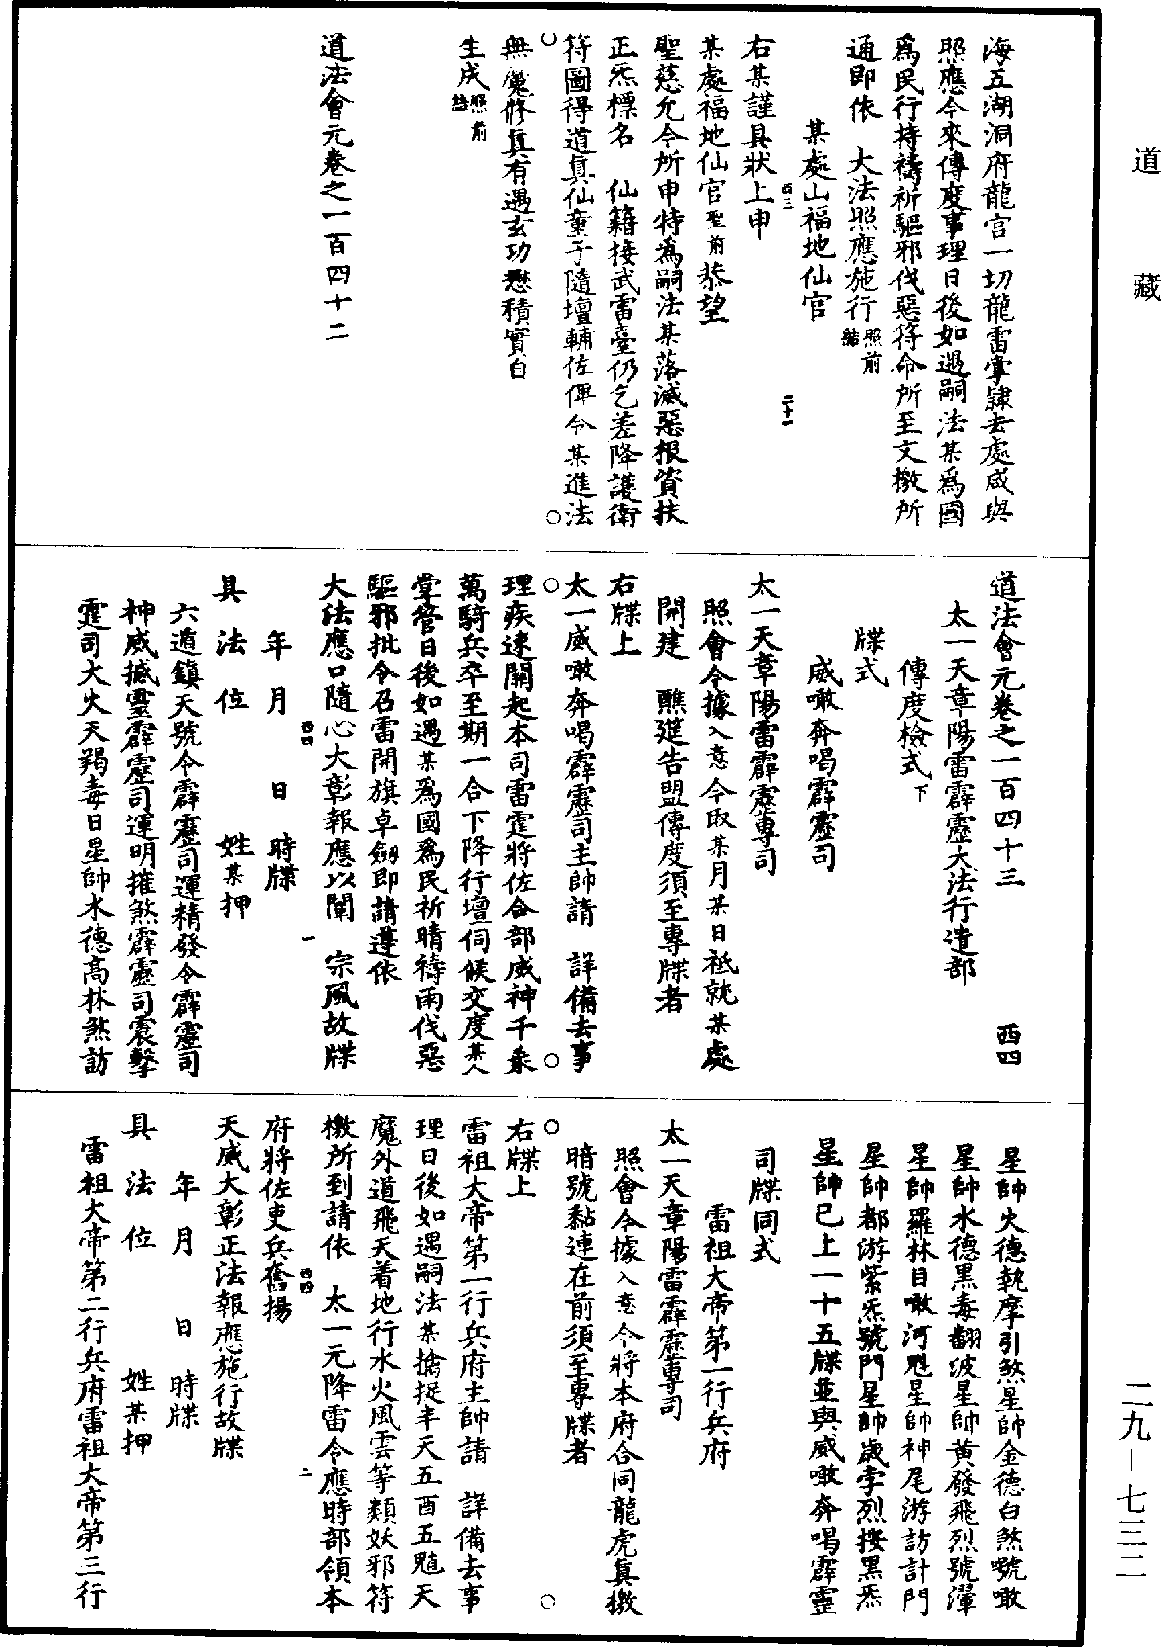 道藏
海五湖洞府龍宫一切龍雷掌隷去處咸與
照應今來傳度事理日後如遇嗣法某爲國
爲民行持禱祈驅邪伐惡符命所至文檄所
通即依　大法照應施行照前結
某處山福地仙官
右某謹具狀上申
西三
二十一
某處福地仙官聖前恭望
聖慈允今所申特爲嗣法某落滅惡報資扶
正炁標名　仙籍接武雷臺仍乞差降護衛
符圖得道真仙童子隨壇輔佐俾令某進法
無魔修真有遇玄功懋積實自
生成照前結
道法會元卷之一百四十二
道法會元卷之一百四十三　西四
太一天章陽雷霹靂大法行遣部
傳度檢式下
牒式
威噉奔喝霹靂司
太一天章陽雷霹靂專司
照會今據入意今取某月某日祗就某處
開建　醮筵告盟傳度須至專牒者
右牒上
太一威噉奔喝霹靂司主帥請　詳備去事
理疾速關起本司雷霆將佐合部威神千乘
萬騎兵卒至期一合下降行壇伺候交度某人
掌管日後如遇某爲國爲民祈晴禱雨伐惡
驅邪批令召雷開旗卓劒即請遵依
大法應口隨心大彰報應以闡　宗風故牒
西四
一
年　月　日　時牒
具　法　位　姓某押
六道鎮天號令霹靂司運精發令霹靂司
神威撼靈霹靂司運明摧煞霹靂司震擊
霆司大火天羯毒日星帥水德高林煞訪
星帥火德執摩引煞星帥金德白煞號噉
星帥水德黑毒翻波星帥黄發飛烈號潬
星帥羅林目噉河魁星帥神尾游訪計門
星帥都游紫炁號門星帥歲孛烈接黑炁
星帥已上一十五牒並與威噉奔喝霹靂
司牒同式
雷祖大帝第一行兵府
太一天章陽雷霹靂專司
照會今據入意今將本府合同龍虎真檄
暗號黏連在前須至專牒者
右牒上
雷祖大帝第一行兵府主帥請　詳備去事
理日後如遇嗣法某擒捉半天五酉五魈天
魔外道飛天着地行水火風雲等類妖邪符
檄所到請依　太一元降雷令應時部領本
府將佐吏兵奮揚
西四
二
天威大彰正法報應施行故牒
年　月　日　時牒
具　法　位　姓某押
雷祖大帝第二行兵府雷祖大帝第三行
二九—七三二